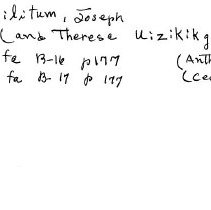 ilitum, Joseph
(and Therese Uizikikg
fa B-16 p177 (Anth
fa B-17 p 177 (Cec